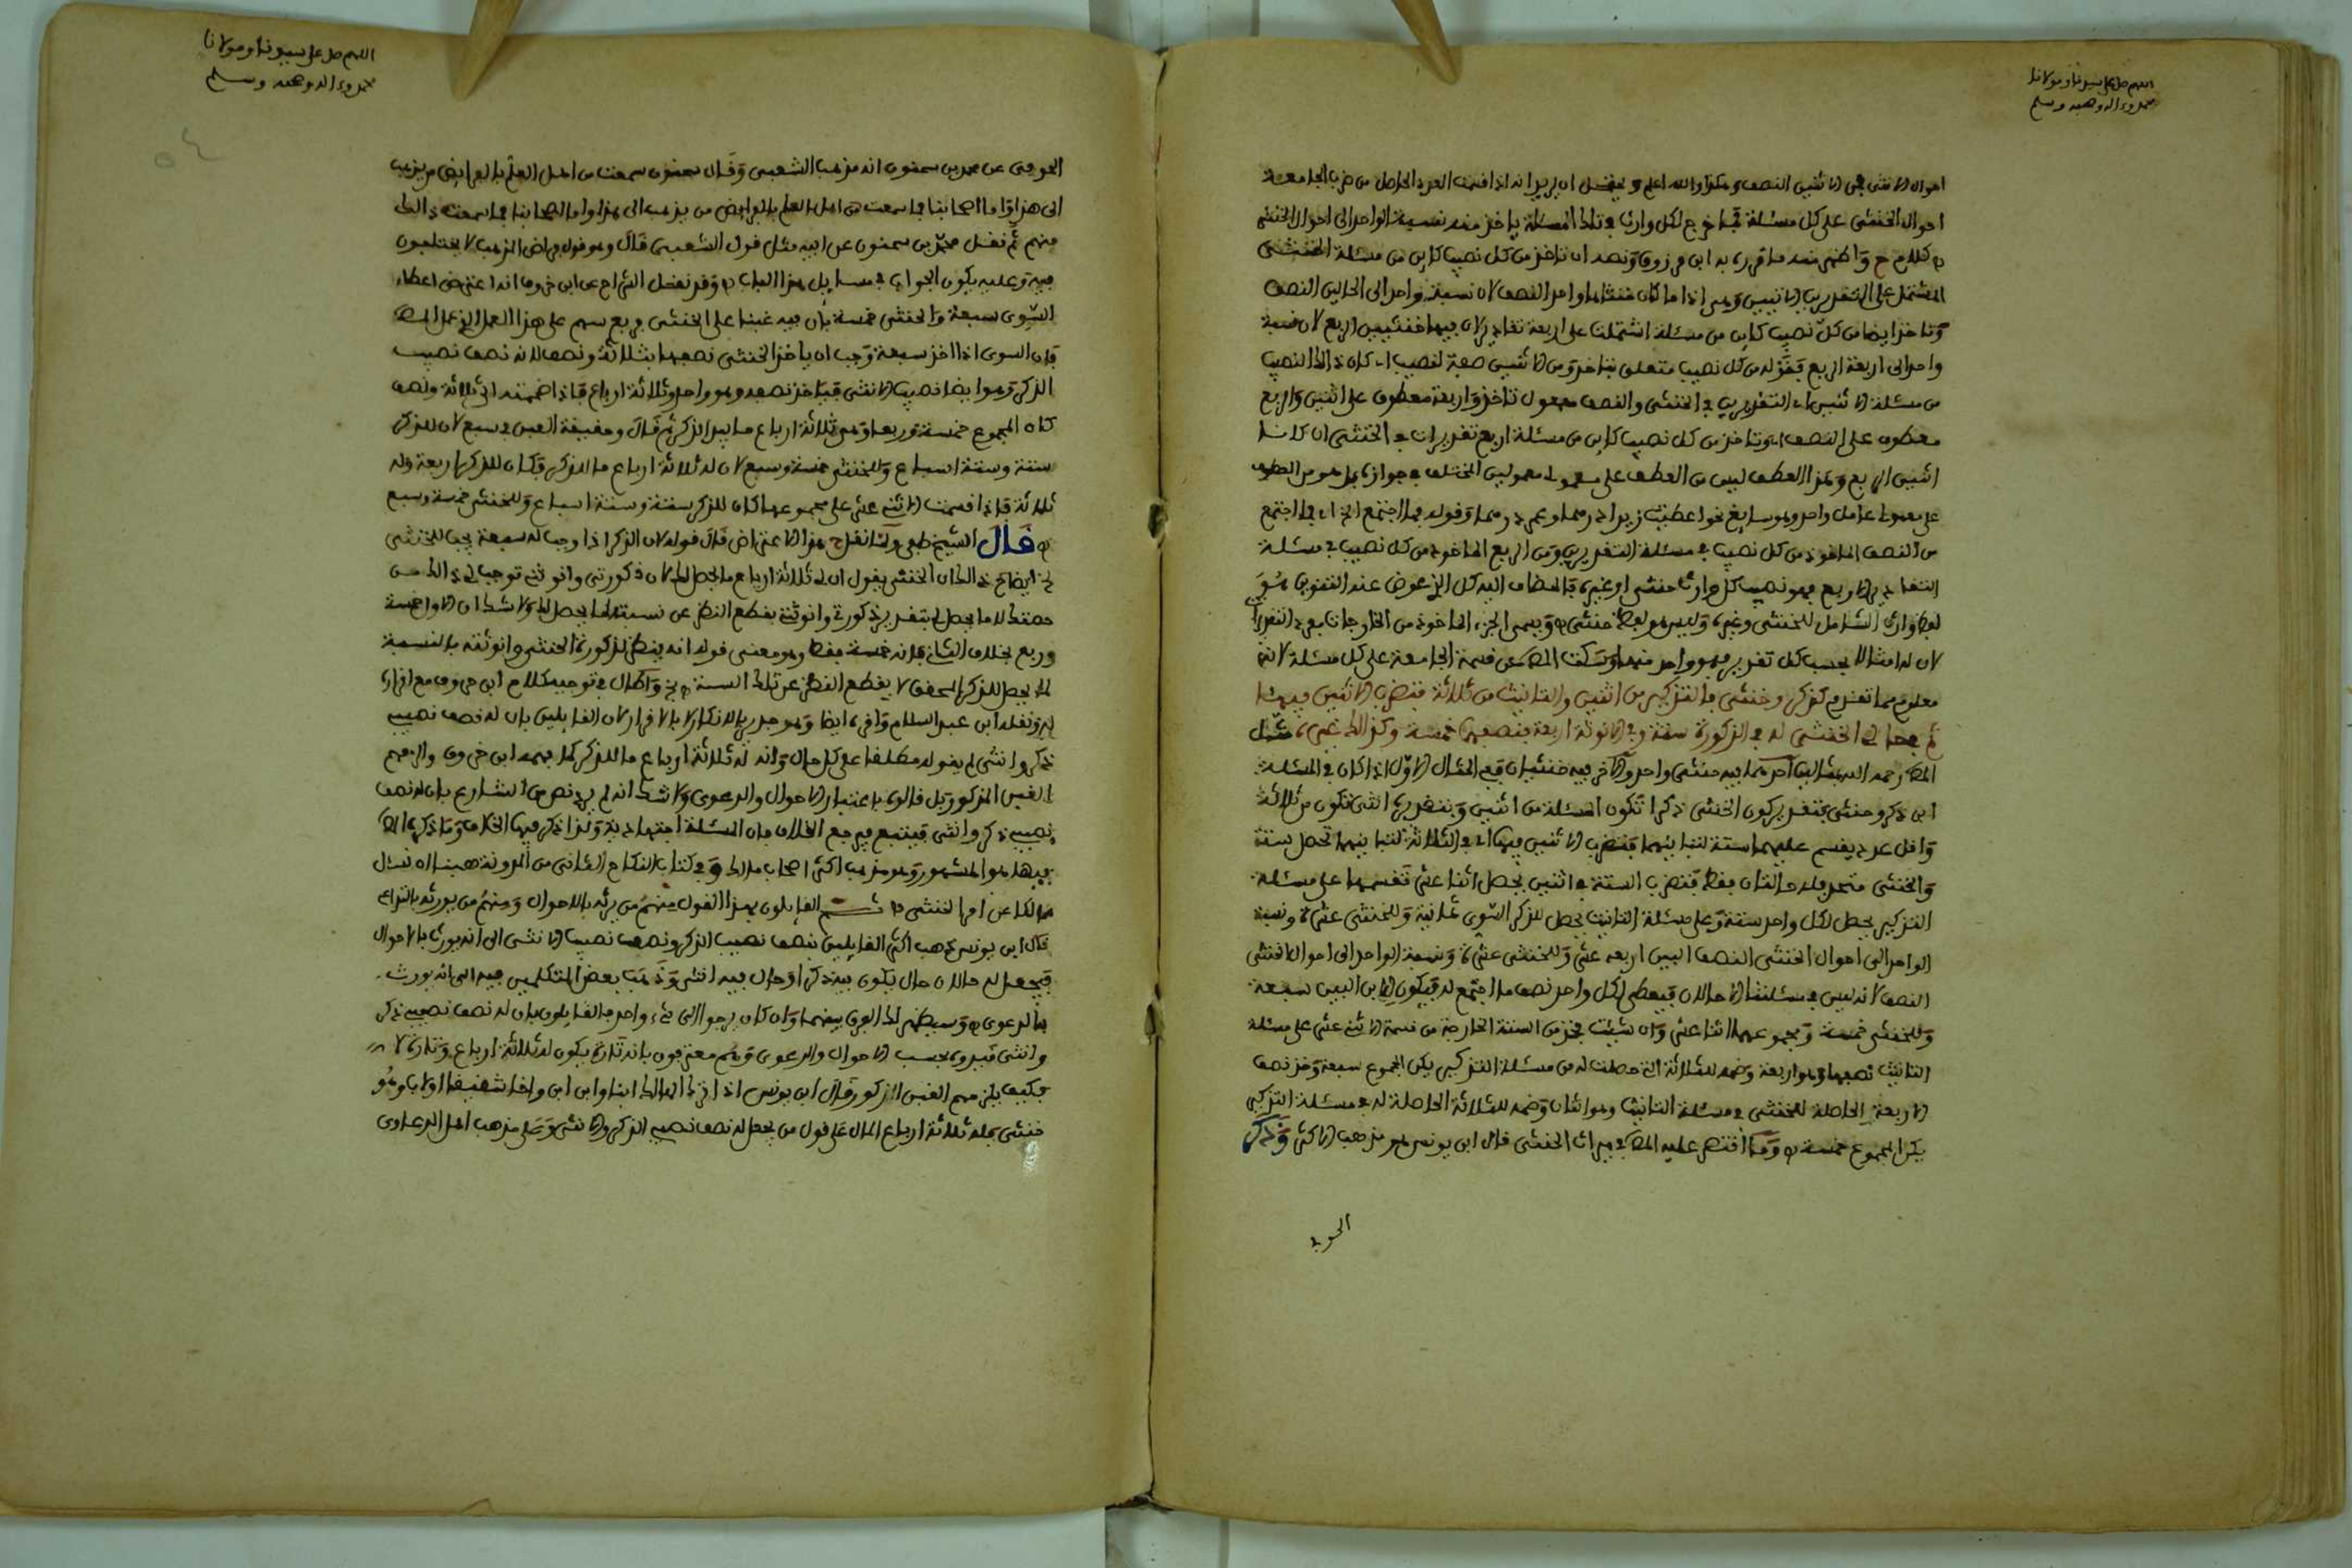 اللهم صل على سيدنا ومولانا
محمد وءاله وصحبه وسلم
احوال الانثى في الانثيين النصف وهكذا والله اعلم ويحتمل ان يريد انه اذا قسمت العدد الحاصل من ضرب الجامعة
احوال الخنثى على كل مسئلة فما خرج لكل وارث في تلك المسئلة ياخذ منه نسبة الواحد الى احوال الخنثى
كلام ح واظهر منه ما قرره به ابن مرزوق ونصه ان تاخذ من كل نصيب كاين من مسئلة الخنثى
المشتمل على التقديرين الاثنين وهي اذا ما كان خنثاها واحد النصف لان نسبة واحد الى الحالين النصف
وتاخذ ايضا من كل نصيب كاين من مسئلة اشتملت على اربعة تقادير لان فيها خنثيين الربع لان نسبة
واحد الى اربعة الربع فقوله من كل نصيب متعلق بتاخذ ومن الاثنين صفة لنصيب اي كان ذالك النصيب
من مسئلة الاثنين اي التقديرين في الخنثى والنصف معمول تاخذ واربعة معطوف على اثنين والربع
معطوف على النصف اي وتاخذ من كل نصيب كاين من مسئلة اربع تقديرات في الخنثى ان كانتا
اثنين الربع وهذا العطف ليس من العطف على معمولي معمولين المختلف في جوازه بل هو من العطف
على معمولي عامل واحد وهو سايغ نحو اعطيت زيدا درهما وعمر درهما وقوله فما اجتمع الخ اي فما اجتمع
من النصف الماخوذ من كل نصيب في مسئلة التقديرين ومن الربع الماخوذ من كل نصيب في مسئلة
التقادير الاربع فهو نصيب كل وارث خنثى او غيره فالمضاف اليه كل الذي عوض عنه التنوين هو
لفظ وارث الشامل للخنثى وغيره وليس هو لفظ خنثى ويسمى الجزء الماخوذ من الخارجات بعدد التقديرات
لان له امثالا بحسب كل تقدير فهو واحد منها وسكت المص عن قسمة الجامعة على كل مسئلة لانه
معلوم مما تقدم كذكر وخنثى فالتذكير من اثنين والتانيث من ثلاثة فتضرب الاثنين فيها
ثم في حالتي الخنثى له في الذكورة ستة وفي الانوثة اربعة فنصفها خمسة وكذالك غيره مثل
المص رحمه الله بمثالين احدهما فيه خنثى واحد والآخر فيه خنثيان ففي المثال الاول اذا كان في المسئلة
ابن ذكر وخنثى فبتقدير كون الخنثى ذكرا تكون المسئلة من اثنين وبتقديره انثى تكون من ثلاثة
واقل عدد ينقسم عليهما ستة لتباينهما فتضرب الاثنين فيها اي في الثلاثة لتباينهما تحصل ستة
والخنثى متحد فله حالتان فقط فتضرب الستة في اثنين يحصل اثنا عشر تقسمها على مسئلة
التذكير يحصل لكل واحد ستة وعلى مسئلة التانيث يحصل للذكر السوى ثمانية وللخنثى
الواحد الى احوال الخنثى النصف اليس اربعة عشر وللخنثى عشرة ونسبة الواحد الى احوال الخنثى
النصف لانه ليس في مسئلتنا الا حالان فيعطى لكل واحد نصف ما اجتمع له فيكون للابن البين سبعة
وللخنثى خمسة ومجموعهما اثنا عشر وان شيت فخذ من الستة الخارجة من قسمة الاثني عشر على مسئلة
التانيث نصفها وهو اربعة وضمه للثلاثة التي حصلت له من مسئلة التذكير يكن المجموع سبعة وخذ نصف
الاربعة الحاصلة للخنثى في مسئلة التانيث وهو اثنان وضمه للثلاثة الحاصلة له في مسئلة التذكير
يكن المجموع خمسة وما اقتصر عليه المص في ميراث الخنثى قال ابن يونس هو مذهب الاكثر وذكر
الحوفي
اللهم صل على سيدنا ومولانا
محمد وءاله وصحبه وسلم
الحوفي عن محمد بن سحنون انه مذهب الشعبي وقال سحنون سمعت من اهل العلم بالفرايض من يذهب
الى هذا واما اصحابنا فما سمعت من اهل العلم بالفرايض من يذهب الى هذا واما اصحابنا فما سمعت ذالك
منهم ثم نقل محمد بن سحنون عن ابيه مثل قول الشعبي قال وهو قول فراض المذهب لا يختلفون
فيه وعليه يكون الجواب في مسايل هذا الباب وقد نقل الشراح عن ابن خروف انه اعترض اعطاء
السوى سبعة والخنثى خمسة بان فيه غبنا على الخنثى بربع سهم على هذا العمل الذي عمل المص
فان السوى اذا اخذ سبعة وجب ان ياخذ الخنثى نصفها ثلاثة ونصف لانه نصف نصيب
الذكر وهو ايضا نصيب الانثى فياخذ نصفه وهو واحد وثلاثة ارباع فاذا ضممته الى ثلاثة ونصف
كان المجموع خمسة وربعا وهو ثلاثة ارباع ما بيد الذكر ثم قال وحقيقة الغبن في سبع لان للذكر
ستة وستة اسباع وللخنثى خمسة وسبع لان له ثلاثة ارباع ما للذكر فكان للذكر اربعة وله
ثلاثة فاذا قسمت الاثني عشر على مجموعهما كان للذكر ستة وستة اسباع وللخنثى خمسة وسبع
قال الشيخ طفى ولما نقل ح هذا الاعتراض قال قوله لان الذكر اذا وجب له سبعة يجب للخنثى
ايضاح ذالك ان الخنثى يقول ان لي ثلاثة ارباع ما يحصل لك لان ذكورتي وانوثتي توجب لي ذالك من
حصتك لا ما يحصل لي بتقدير ذكورتي وانوثتي بقطع النظر عن نسبته لما يحصل لك ولا شك ان الاول خمسة
وربع بخلاف الثاني فانه خمسة فقط وهو معنى قوله انه ينظر لذكورة الخنثى وانوثته بالنسبة
لما يحصل للذكر المحقق لا بقطع النظر عن تلك النسبة واطال في توجيه كلام ابن خروف مع اقراره
له ونقله ابن عبد السلام واقره ايضا وهو جدير بالانكار لا بالاقرار لان القايلين بان له نصف نصيب
ذكر وانثى لم يقوله مطلقا على كل حال وانه له ثلاثة ارباع ما للذكر كما فهمه ابن خروف والزمهم
الغبن المذكور بل قالوه باعتبار الاحوال والدعوى ولا شك انه لم يرد نص من الشارع بان له نصف
نصيب ذكر وانثى فيتبع مع الخلاف فان المسئلة اجتهادية ولذا ذكر فيها الخلاف وما ذكره المص
فيها هو المشهور وهو مذهب اكثر اصحاب مالك وفي كتاب النكاح الثاني من المدونة هبنا ان نسئل
مالكا عن امر الخنثى القايلون بهذا القول منهم من يرثه بالاحوال ومنهم من يورثه بالتداعي
قال ابن يونس ذهب اكثر القايلين بنصف نصيب الذكر ونصف نصيب الانثى الى انه يورث بالاحوال
فيجعل له حالان حال يكون فيه ذكرا وحال فيه انثى وذهب بعض المتكلمين فيه الى انه يورث
بالدعوى وسيظهر لك الفرق بينهما وان كان يرجو الى شيء واحد فالقايلون بان له نصف نصيب ذكر
وانثى قيدوه بحسب الاحوال والدعوى وهم معترفون بانه تارة يكون له ثلاثة ارباع وتارة لا
فكيف يلزمهم الغبن المذكور قال ابن يونس اذا ترك الهالك ابنا وابن ابن واخا شقيقا اولاب وهو
خنثى فله ثلاثة ارباع المال على قول من يجعل له نصف نصيب الذكر والانثى وعلى مذهب اهل الدعاوى